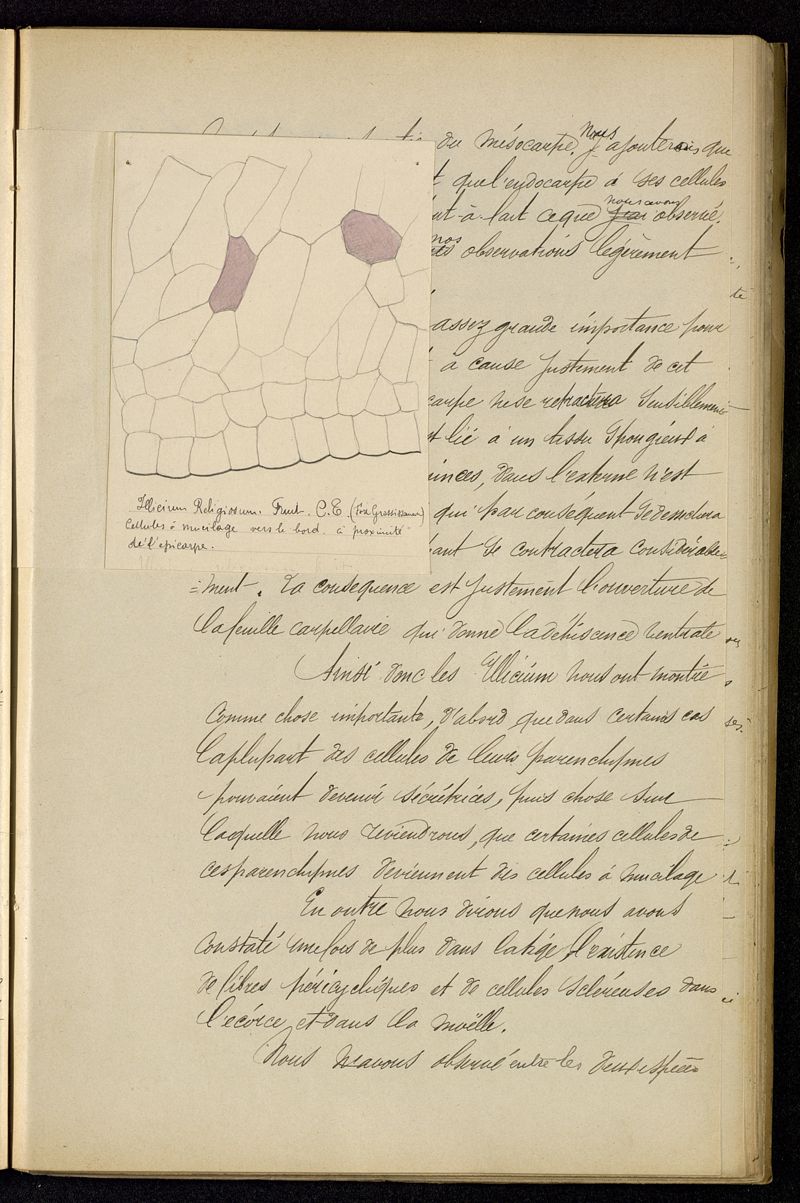 du mésocarpe. Nous ajouterons que
que l'endocarpe a ses cellules
ce que nous avons j'ai observé.
nos observations légèrement
assez grande importance pour
a cause justement de cet
carpe ne se rétractera sensiblement
lié à un tissu spongieux à
minces, dans l'externe n'est
qui par conséquent se desséchera
se contractera considérable=
=ment. La conséquence est justement l'ouverture de
la feuille carpellaire qui donne la déhiscence ventrale
Illicium Religiosum. Fruit. C.T. (Fort Grossissement)
Cellules à mucilage vers le bord à proximité
de l'épicarpe.
Ainsi donc les Illicium nous ont montré
comme chose importante, d'abord que dans certains cas
la plupart des cellules de leurs parenchymes
pouvaient devenir sécrétrices, puis chose sur
laquelle nous reviendrons, que certaines cellules de
ces parenchymes deviennent des cellules à mucilage
En outre nous dirons que nous avons
constaté une fois de plus dans la tige l'existence
de fibres péricycliques et de cellules scléreuses dans
l'écorce et dans la moëlle.
Nous n'avons observé entre les deux espèces